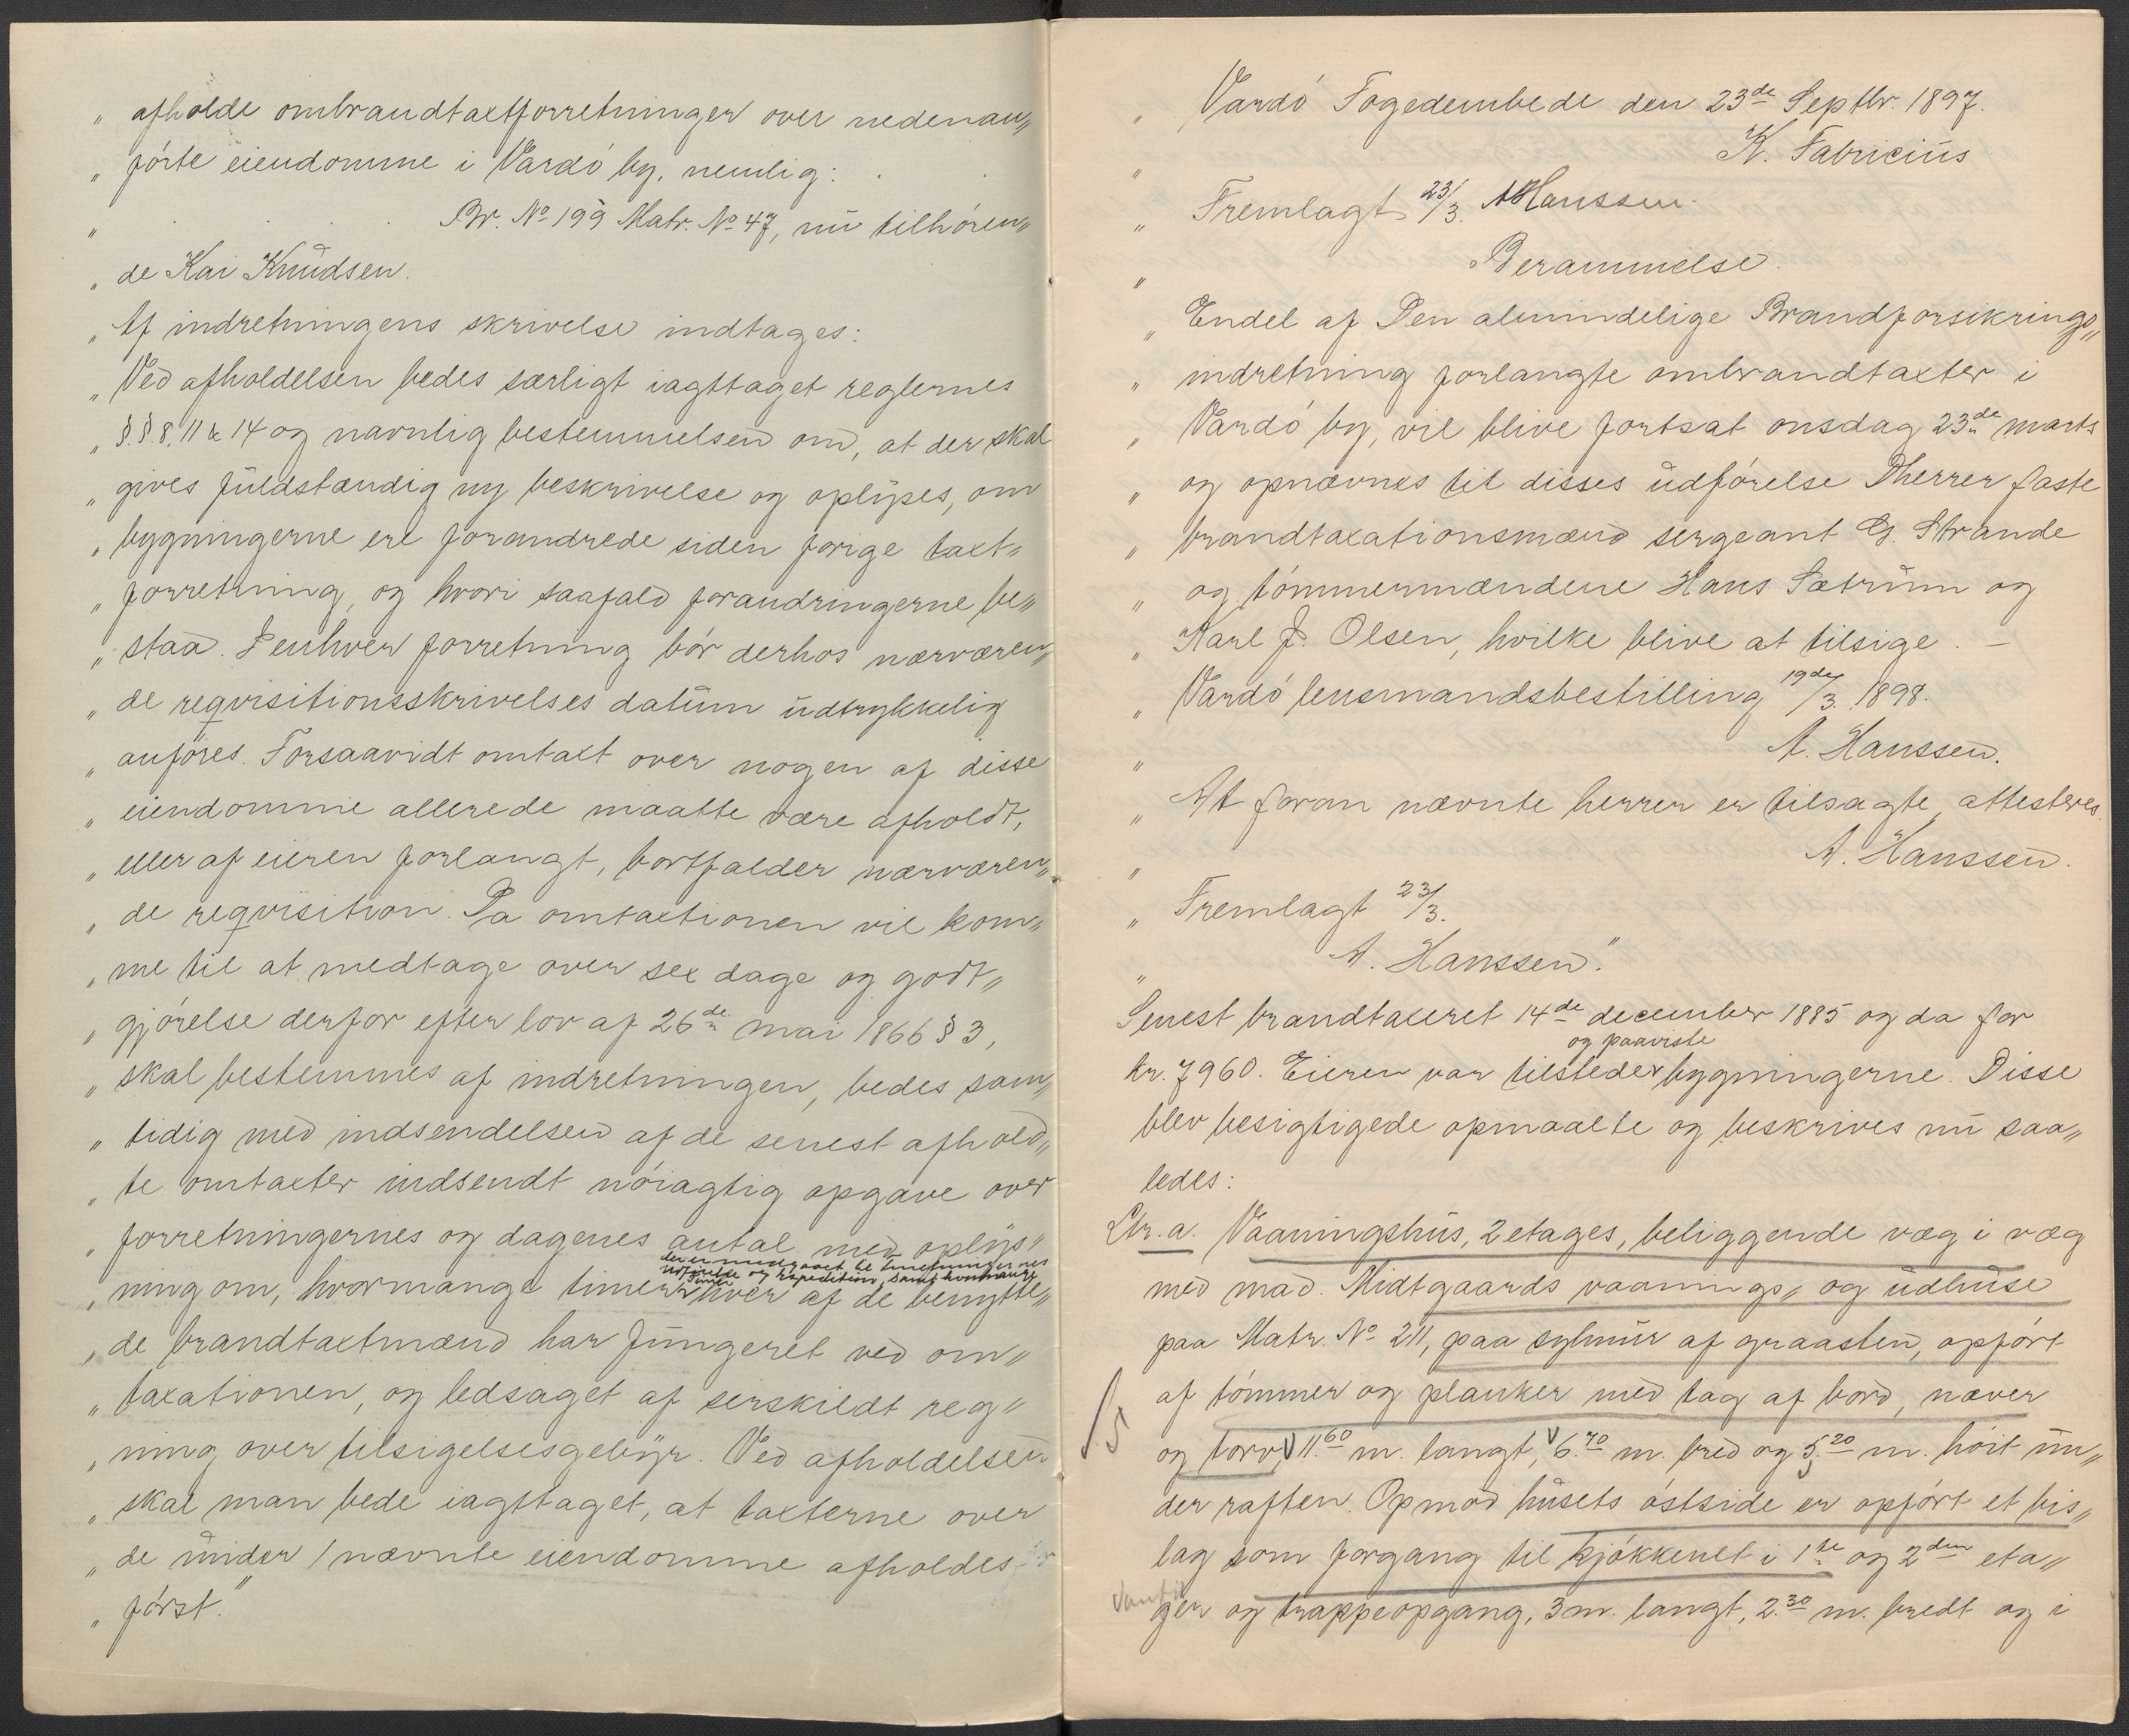 „ afholde ombrandtaxtforretninger over nedenan„
„ førte eiendomme i Vardø by, nemlig:
„ Br. No 199 Matr. No 47, nu tilhøren„
„ de Kai Knudsen.
„ Af indretningens skrivelse indtages:
„ Ved afholdelsen bedes særligt iagttaget reglernes
„ §.§. 8, 11 & 14 og navnlig bestemmelsen om, at der skal
„ gives fuldstændig ny beskrivelse og oplyses, om
„ bygningerne ere forandrede siden forige taxt„
„ forretning, og hvori saafald forandringerne be„
„ staa. I enhver forretning bør derhos nærværen„
„ de reqvisitionsskrivelses datum udtrykkelig
„ anføres. Forsaavidt omtaxt over nogen af disse
„ eiendomme allerede maatte være afholdt,
„ eller af eieren forlangt, bortfalder nærværen„
„ de reqvisition. Da omtaxtionen vil kom„
„ me til at medtage over sex dage og godt„
„ gjørelse derfor efter lov af 26de mai 1866 § 3,
„ skal bestemmes af indretningen, bedes sam„
„ tidig med indsendelsen af de senest afhold„
„ te omtaxter indsendt nøiagtig opgave over
„ forretningernes og dagenes antal med oplys„
der er medgaaet til forretningernes
udførelse og expedition, samt hvormange
timer
„ ning om, hvormange timer hver af de benytte„
„ de brandtaxtmænd har fungeret ved om„
„ taxationen, og ledsaget af serskildt reg„
„ ning over tilsigelsesgebyr. Ved afholdelsen
„ skal man bede iagttaget, at taxterne over
„ de under 1 nævnte eiendomme afholdes
„ først."
„ Vardø Fogedembede den 23de Septbr. 1897.
„ K. Fabricius
„ Fremlagt 23/3. AHanssen.
„ Berammelse.
„ Endel af Den almindelige Brandforsikrings„
„ indretning forlangte ombrandtaxter i
„ Vardø by, vil blive fortsat onsdag 23de marts
„ og opnævnes til disses udførelse Dherrer faste
„ brandtaxationsmænd sergeant G. Strande
„ og tømmermændene Hans Sætrum og
„ Karl J. Olsen, hvilke blive at tilsige. –
„ Vardø lensmandsbestilling 19de/3. 1898.
„ A. Hanssen.
„ At foran nævnte herrer er tilsagte, attesteres.
„ A. Hanssen.
„ Fremlagt 23/3.
„ A. Hanssen."
Senest brandtaxeret 14de december 1885 og da for
og paaviste
kr. 7960. Eieren var tilstede bygningerne. Disse
blev besigtigede opmaalte og beskrives nu saa„
ledes:
Ltr. a. Vaaningshus, 2 etages, beliggende væg i væg
med mad. Midtgaards vaanings„ og udhuse
paa Matr. No 211, paa sylmur af graasten, opført
af tømmer og planker med tag af bord, næver
og torv, 11.60 m. langt, 6.70 m. bred og 5.20 m. høit un„
der raften. Opmod husets østside er opført et bis„
lag som forgang til kjøkkenet i 1te og 2den eta„
ger og trappeopgang, 3 m. langt, 2.30 m. bredt og i